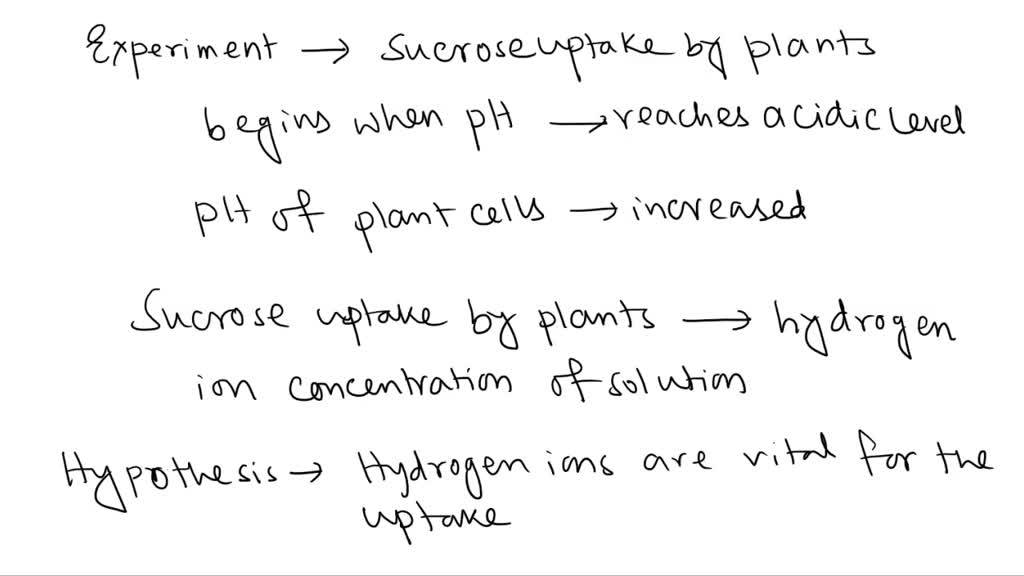 Experiment → Sucrose uptake by plants
begins when pH → reaches acidic level
pH of plant cells → increased
Sucrose uptake by plants → hydrogen
ion concentration of solution
Hypothesis → Hydrogen ions are vital for the
uptake